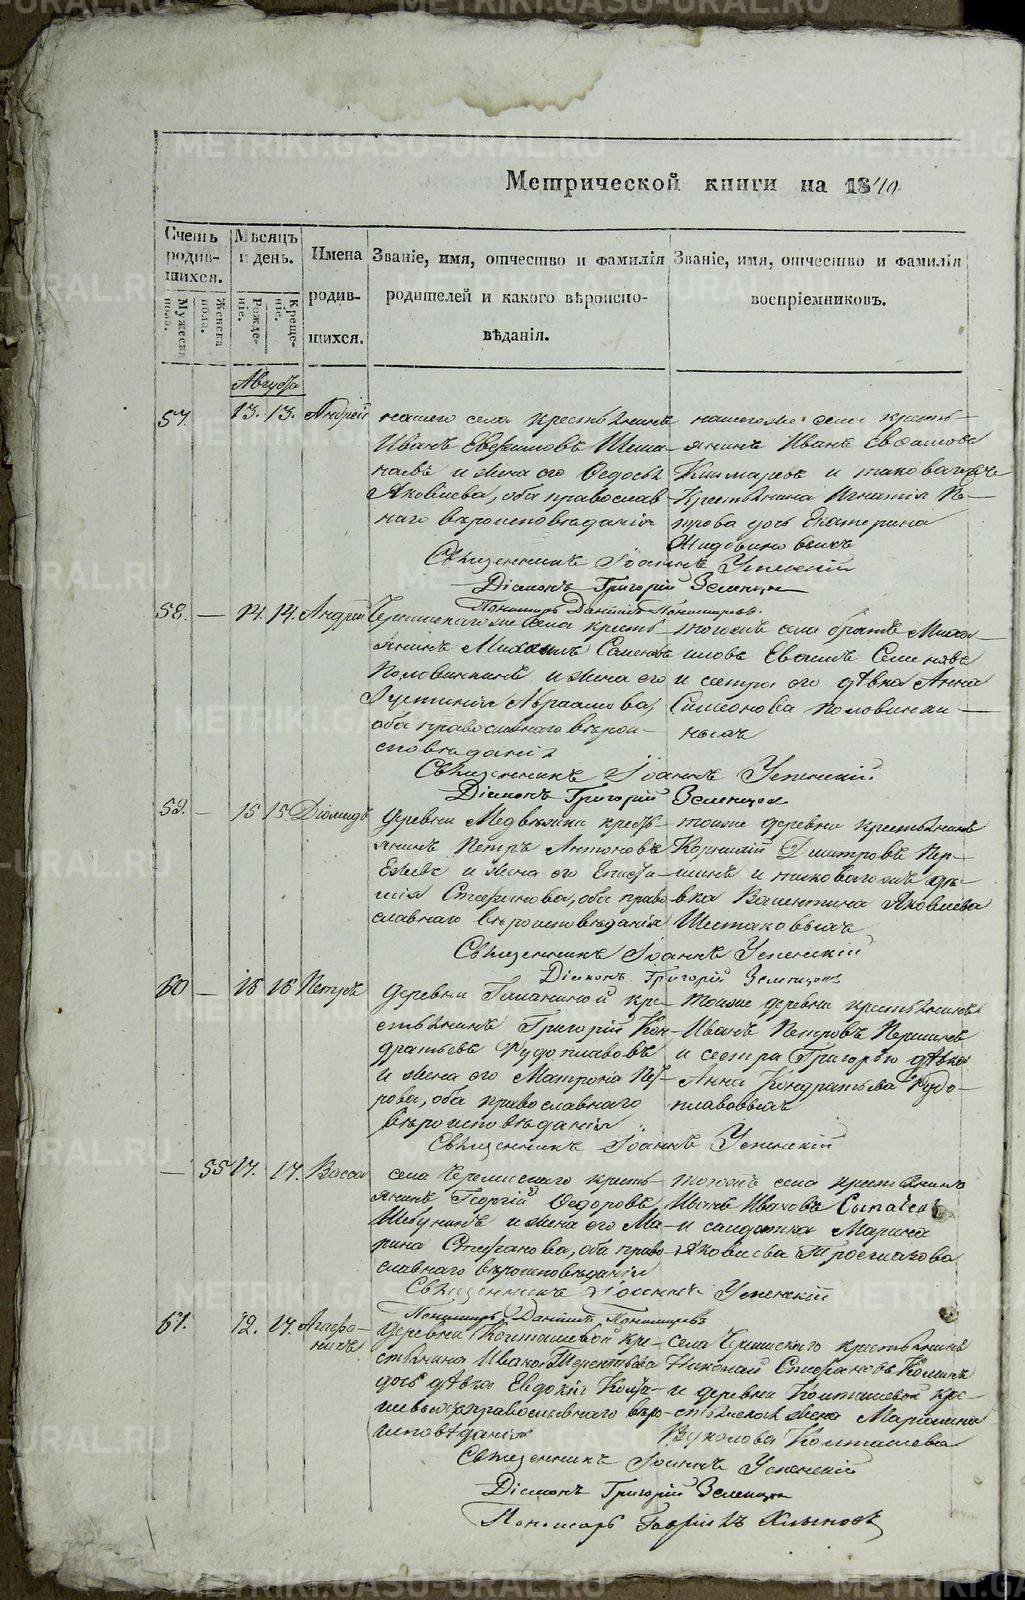 Метрической книги на 1840
Счетъ родив-шихся.
Мужеска пола.
Женска пола.
Мѣсяцъ и день.
Рожде-ніе.
Креще-ніе.
Имена родив-шихся.
Званіе, имя, отчество и фамилія родителей и какого вѣроиспо-вѣданія.
Званіе, имя, отчество и фамилія воспріемниковъ.
Августа
57. 13. 13. Андрей
нашего села крестьянинъ
Иванъ Евфимовъ
и жена его Федосья
Яковлева, оба православ-
наго вѣроисповѣданія
нашегоже села кресть-
янинъ Иванъ
и таковагоже
Крестьянина Игнатія Пе-
трова дочь Екатерина
Священникъ Іоаннъ Успенскій
Діаконъ Григорій Зеленцовъ
Пономарь Даніилъ Пономаревъ.
58. — 14. 14. Андрей
села кресть-
янинъ Михаилъ Семеновъ
Половинкинъ и жена его
Іустинія Авраамова,
оба православнаго вѣрои-
сповѣданія
тогоже села братъ Миха-
иловъ Семеновъ
и сестра его дѣвка Анна
Симеонова Половинки-
ныхъ
Священникъ Іоаннъ Успенскій
Діаконъ Григорій Зеленцовъ
59. — 15 15. Діомидъ
деревни кресть-
янинъ Петръ Антоновъ
и жена его
Стефанова, оба право-
славнаго вѣроисповѣданія
тойже деревни крестьянинъ
Корнилій Дмитровъ Пер-
шинъ и таковагожъ дѣ-
вка Валентина Яковлева
Шестаковыхъ
Священникъ Іоаннъ Успенскій
Діаконъ Григорій Зеленцовъ
60 — 16 16 Петръ
деревни кре-
стьянинъ Григорій Кон-
дратьевъ Рудоплавовъ
и жена его Матрона
оба православнаго
вѣроисповѣданія
тойже деревни крестьянинъ
Иванъ Петровъ Першинъ
и сестра Григорью дѣвка
Анна Кондратьева Рудо-
плавовыхъ
Священникъ Іоаннъ Успенскій
— 55 17. 17. Васса
села Черемисскаго кресть-
янинъ Георгій Федоровъ
и жена его Ма-
рина Стефанова, оба право-
славнаго вѣроисповѣданія
тогожъ села крестьянинъ
Иванъ Ивановъ
и солдатка Марина
Яковлева
Священникъ Іоаннъ Успенскій
Пономарь Даніилъ Пономаревъ
61. 12. 17. Агафо-
никъ
деревни Колташевой кре-
стьянина Ивана Терентьева
дочь дѣвка Евдокія Колта-
шевыхъ православнаго вѣро-
исповѣданія
села Черемисскаго крестьянинъ
Николай Стефановъ Коминъ
и деревни Колташевой кре-
стьянская жена Маріамна
Вуколова Колташева
Священникъ Іоаннъ Успенскій
Діаконъ Григорій Зеленцовъ
Пономарь Гавріилъ Клыковъ
METRIKI.GASO-URAL.RU